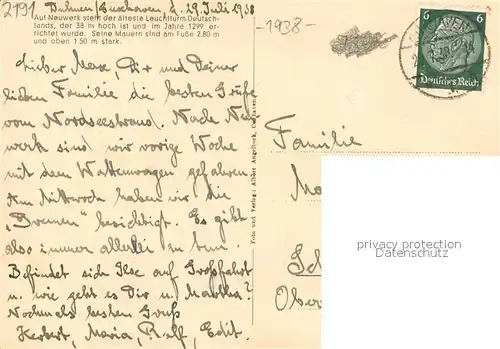 2191 Duhnen/Cuxhaven, d. 29. Juli 1938
Auf Neuwerk steht der älteste Leuchtturm Deutsch-
lands, der 38 m hoch ist und im Jahre 1299 er-
richtet wurde. Seine Mauern sind am Fuße 2.80 m
und oben 1.50 m stark.
Lieber Max, Dir und Deiner
lieben Familie die besten Grüße
vom Nordseestrand. Nach Neu
werk sind wir vorige Woche
mit dem Wattenwagen gefahren.
Am Mittwoch haben wir die
„Bremen" besichtigt. Es gibt
also immer allerlei zu tun.
Befindet sich Ilse auf Großfahrt
u. wie geht es Dir u. Martha?
Nochmals besten Gruß
Herbert, Maria, Ralf, Edit.
Foto und Verlag: Albert Angelbeck, Cuxhaven
-1938-
6 6
Deutsches Reich
Familie
Ma
Sch
Ober
privacy protection
Datenschutz